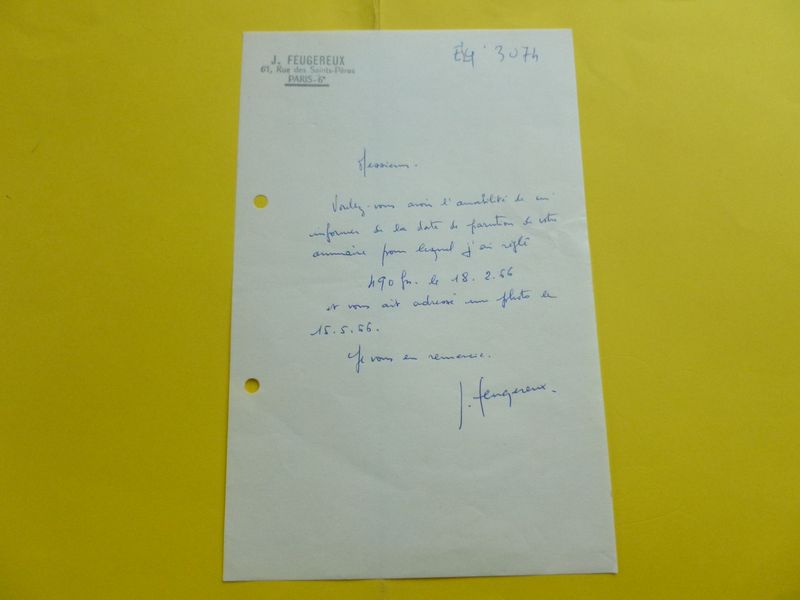 J. FEUGEREUX
61, Rue des Saints-Pères
PARIS-6e
3074
Messieurs.
Voulez-vous avoir l'amabilité de m'
informer de la date de parution de votre
annuaire pour lequel j'ai réglé
490 frs. le 18.2.66
et vous ait adressé une photo le
15.5.66.
Je vous en remercie.
J. Feugereux.